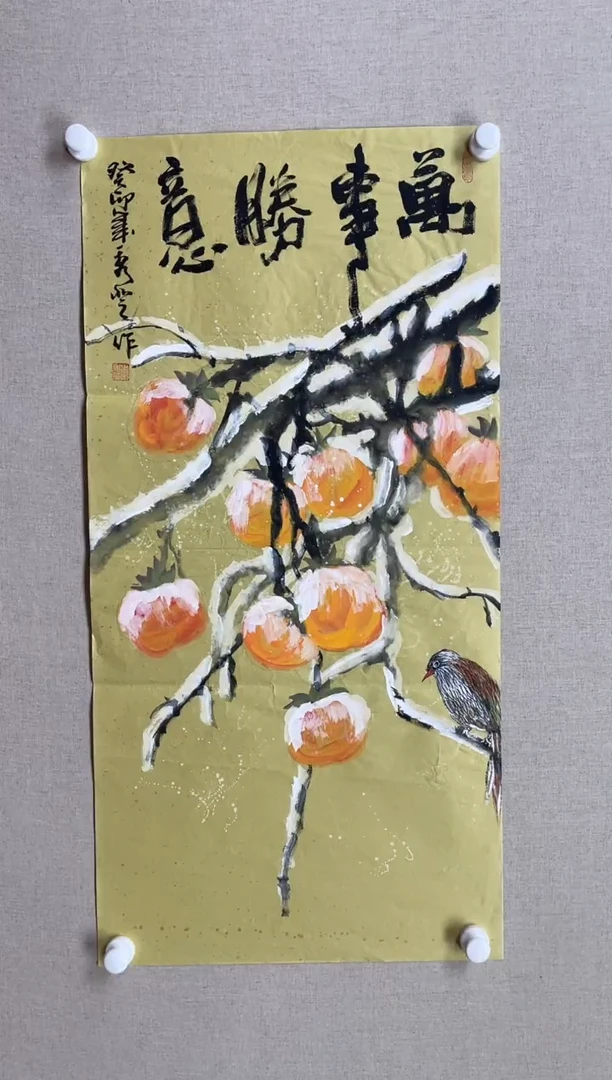 萬事勝意
癸卯年秀芝作